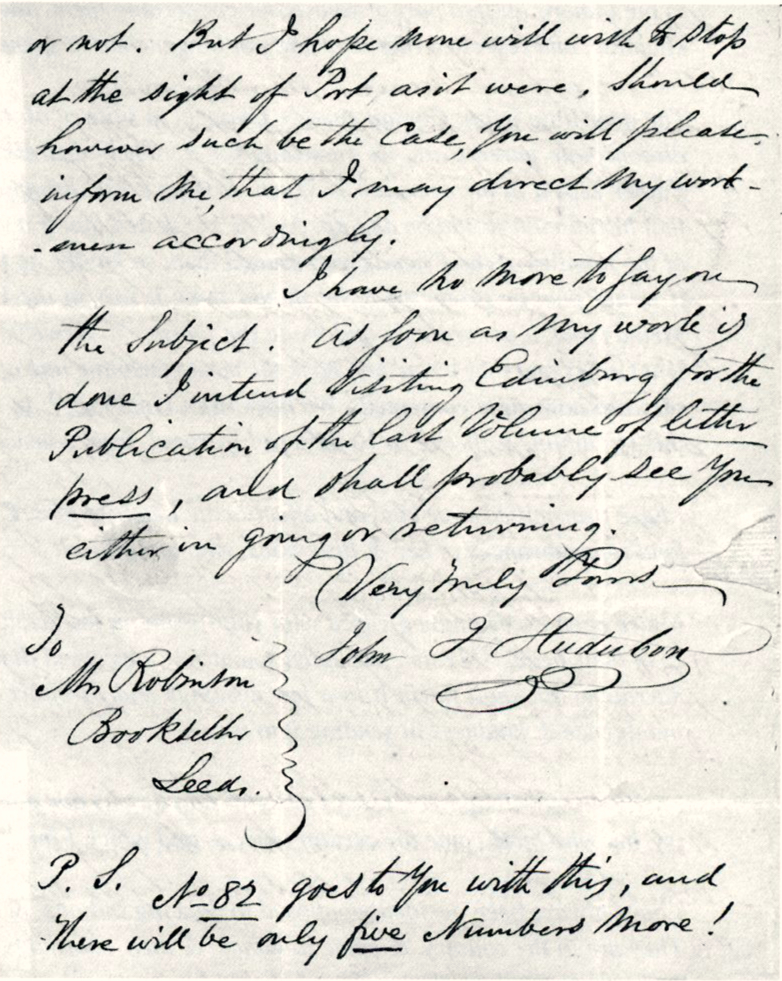 or not. But I hope none will wish to stop
at the sight of Port as it were, Should
however such be the Case, You will please
inform me that I may direct my work-
-men accordingly.
I have no more to say on
the Subject. As soon as my work is
done I intend Visiting Edinburg for the
Publication of the last Volume of letter
press, and shall probably see You
either in going or returning.
Very truly Yours
John J Audubon
To
Mr Robinson
Bookseller
Leeds.
P. S. No 82 goes to You with this, and
There will be only five Numbers more!